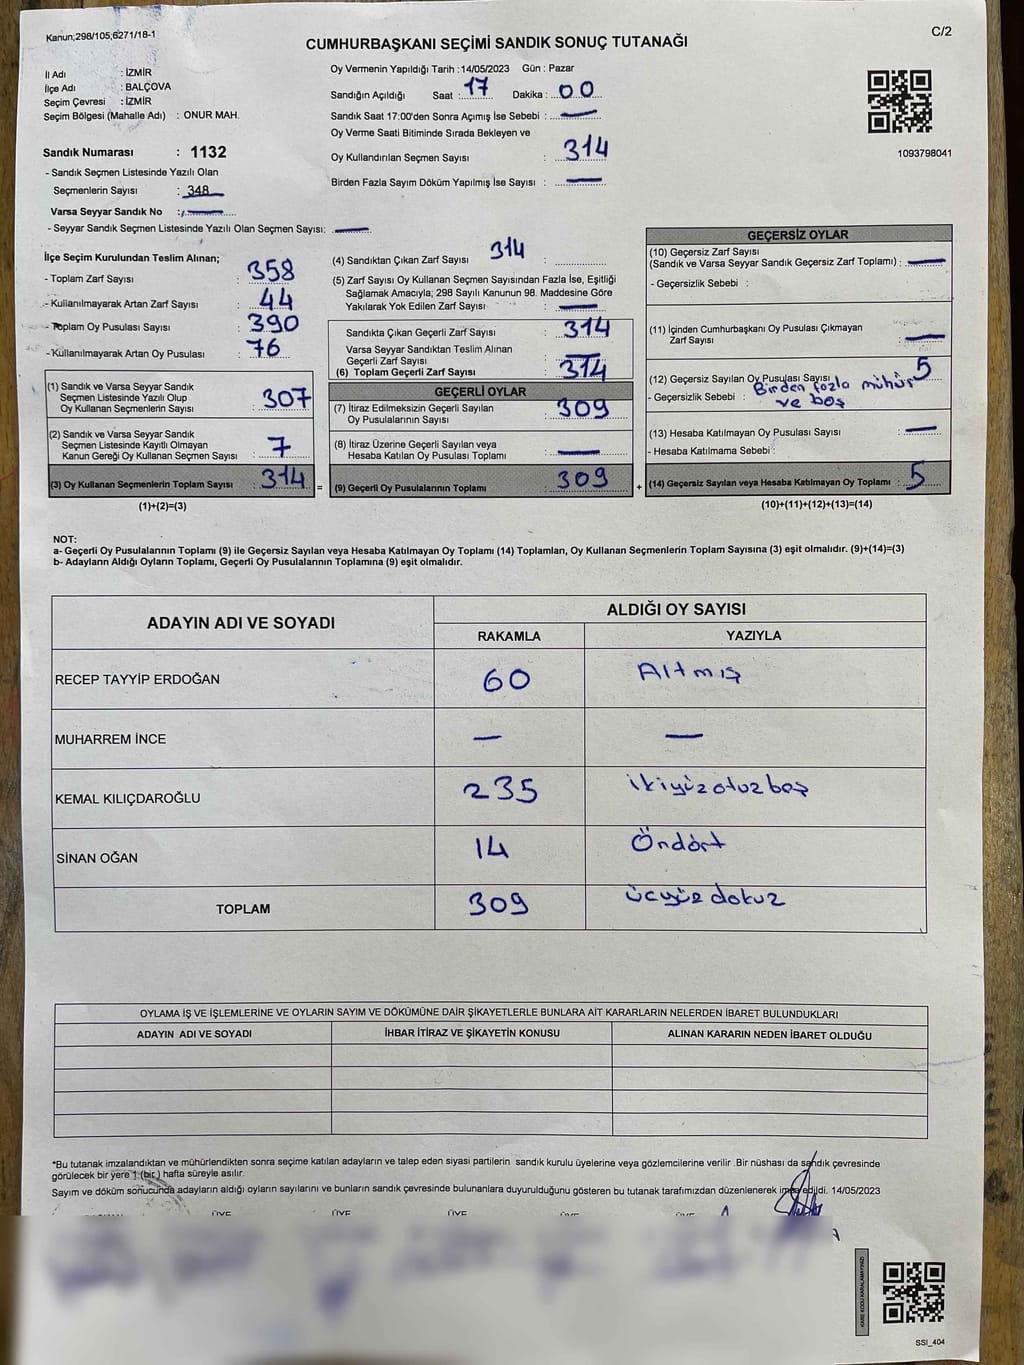 Kanun;298/105;6271/18-1
C/2
CUMHURBAŞKANI SEÇİMİ SANDIK SONUÇ TUTANAĞI
İl Adı : İZMİR
İlçe Adı : BALÇOVA
Seçim Çevresi : İZMİR
Seçim Bölgesi (Mahalle Adı) : ONUR MAH.
Sandık Numarası : 1132
- Sandık Seçmen Listesinde Yazılı Olan
Seçmenlerin Sayısı : 348
Varsa Seyyar Sandık No : —
- Seyyar Sandık Seçmen Listesinde Yazılı Olan Seçmen Sayısı: —
Oy Vermenin Yapıldığı Tarih : 14/05/2023 Gün : Pazar
Sandığın Açıldığı Saat : 17 Dakika : 00
Sandık Saat 17:00'den Sonra Açımış İse Sebebi : —
Oy Verme Saati Bitiminde Sırada Bekleyen ve
Oy Kullandırılan Seçmen Sayısı : 314
Birden Fazla Sayım Döküm Yapılmış İse Sayısı : —
1093798041
İlçe Seçim Kurulundan Teslim Alınan;
- Toplam Zarf Sayısı : 358
- Kullanılmayarak Artan Zarf Sayısı : 44
- Toplam Oy Pusulası Sayısı : 390
- Kullanılmayarak Artan Oy Pusulası : 76
(1) Sandık ve Varsa Seyyar Sandık
Seçmen Listesinde Yazılı Olup
Oy Kullanan Seçmenlerin Sayısı : 307
(2) Sandık ve Varsa Seyyar Sandık
Seçmen Listesinde Kayıtlı Olmayan
Kanun Gereği Oy Kullanan Seçmen Sayısı : 7
(3) Oy Kullanan Seçmenlerin Toplam Sayısı : 314 =
(1)+(2)=(3)
(4) Sandıktan Çıkan Zarf Sayısı : 314
(5) Zarf Sayısı Oy Kullanan Seçmen Sayısından Fazla İse, Eşitliği
Sağlamak Amacıyla; 298 Sayılı Kanunun 98. Maddesine Göre
Yakılarak Yok Edilen Zarf Sayısı : —
Sandıkta Çıkan Geçerli Zarf Sayısı : 314
Varsa Seyyar Sandıktan Teslim Alınan
Geçerli Zarf Sayısı : —
(6) Toplam Geçerli Zarf Sayısı : 314
GEÇERLİ OYLAR
(7) İtiraz Edilmeksizin Geçerli Sayılan
Oy Pusulalarının Sayısı : 309
(8) İtiraz Üzerine Geçerli Sayılan veya
Hesaba Katılan Oy Pusulası Toplamı : —
(9) Geçerli Oy Pusulalarının Toplamı : 309 +
GEÇERSİZ OYLAR
(10) Geçersiz Zarf Sayısı
(Sandık ve Varsa Seyyar Sandık Geçersiz Zarf Toplamı) : —
- Geçersizlik Sebebi :
(11) İçinden Cumhurbaşkanı Oy Pusulası Çıkmayan
Zarf Sayısı : —
(12) Geçersiz Sayılan Oy Pusulası Sayısı : 5
- Geçersizlik Sebebi : Birden fazla mühür
ve boş
(13) Hesaba Katılmayan Oy Pusulası Sayısı : —
- Hesaba Katılmama Sebebi :
(14) Geçersiz Sayılan veya Hesaba Katılmayan Oy Toplamı : 5
(10)+(11)+(12)+(13)=(14)
NOT:
a- Geçerli Oy Pusulalarının Toplamı (9) ile Geçersiz Sayılan veya Hesaba Katılmayan Oy Toplamı (14) Toplamları, Oy Kullanan Seçmenlerin Toplam Sayısına (3) eşit olmalıdır. (9)+(14)=(3)
b- Adayların Aldığı Oyların Toplamı, Geçerli Oy Pusulalarının Toplamına (9) eşit olmalıdır.
ADAYIN ADI VE SOYADI
ALDIĞI OY SAYISI
RAKAMLA YAZIYLA
RECEP TAYYİP ERDOĞAN 60 Altmış
MUHARREM İNCE — —
KEMAL KILIÇDAROĞLU 235 ikiyüzotuzbeş
SİNAN OĞAN 14 Öndört
TOPLAM 309 üçyüz dokuz
OYLAMA İŞ VE İŞLEMLERİNE VE OYLARIN SAYIM VE DÖKÜMÜNE DAİR ŞİKAYETLERLE BUNLARA AİT KARARLARIN NELERDEN İBARET BULUNDUKLARI
ADAYIN ADI VE SOYADI İHBAR İTİRAZ VE ŞİKAYETİN KONUSU ALINAN KARARIN NEDEN İBARET OLDUĞU
*Bu tutanak imzalandıktan ve mühürlendikten sonra seçime katılan adayların ve talep eden siyasi partilerin sandık kurulu üyelerine veya gözlemcilerine verilir .Bir nüshası da sandık çevresinde
görülecek bir yere 1 (bir) hafta süreyle asılır.
Sayım ve döküm sonucunda adayların aldığı oyların sayılarını ve bunların sandık çevresinde bulunanlara duyurulduğunu gösteren bu tutanak tarafımızdan düzenlenerek imza edildi. 14/05/2023
ÜYE ÜYE ÜYE ÜYE ÜYE
KARE KODU KARALAMAYINIZ!
SSI_404